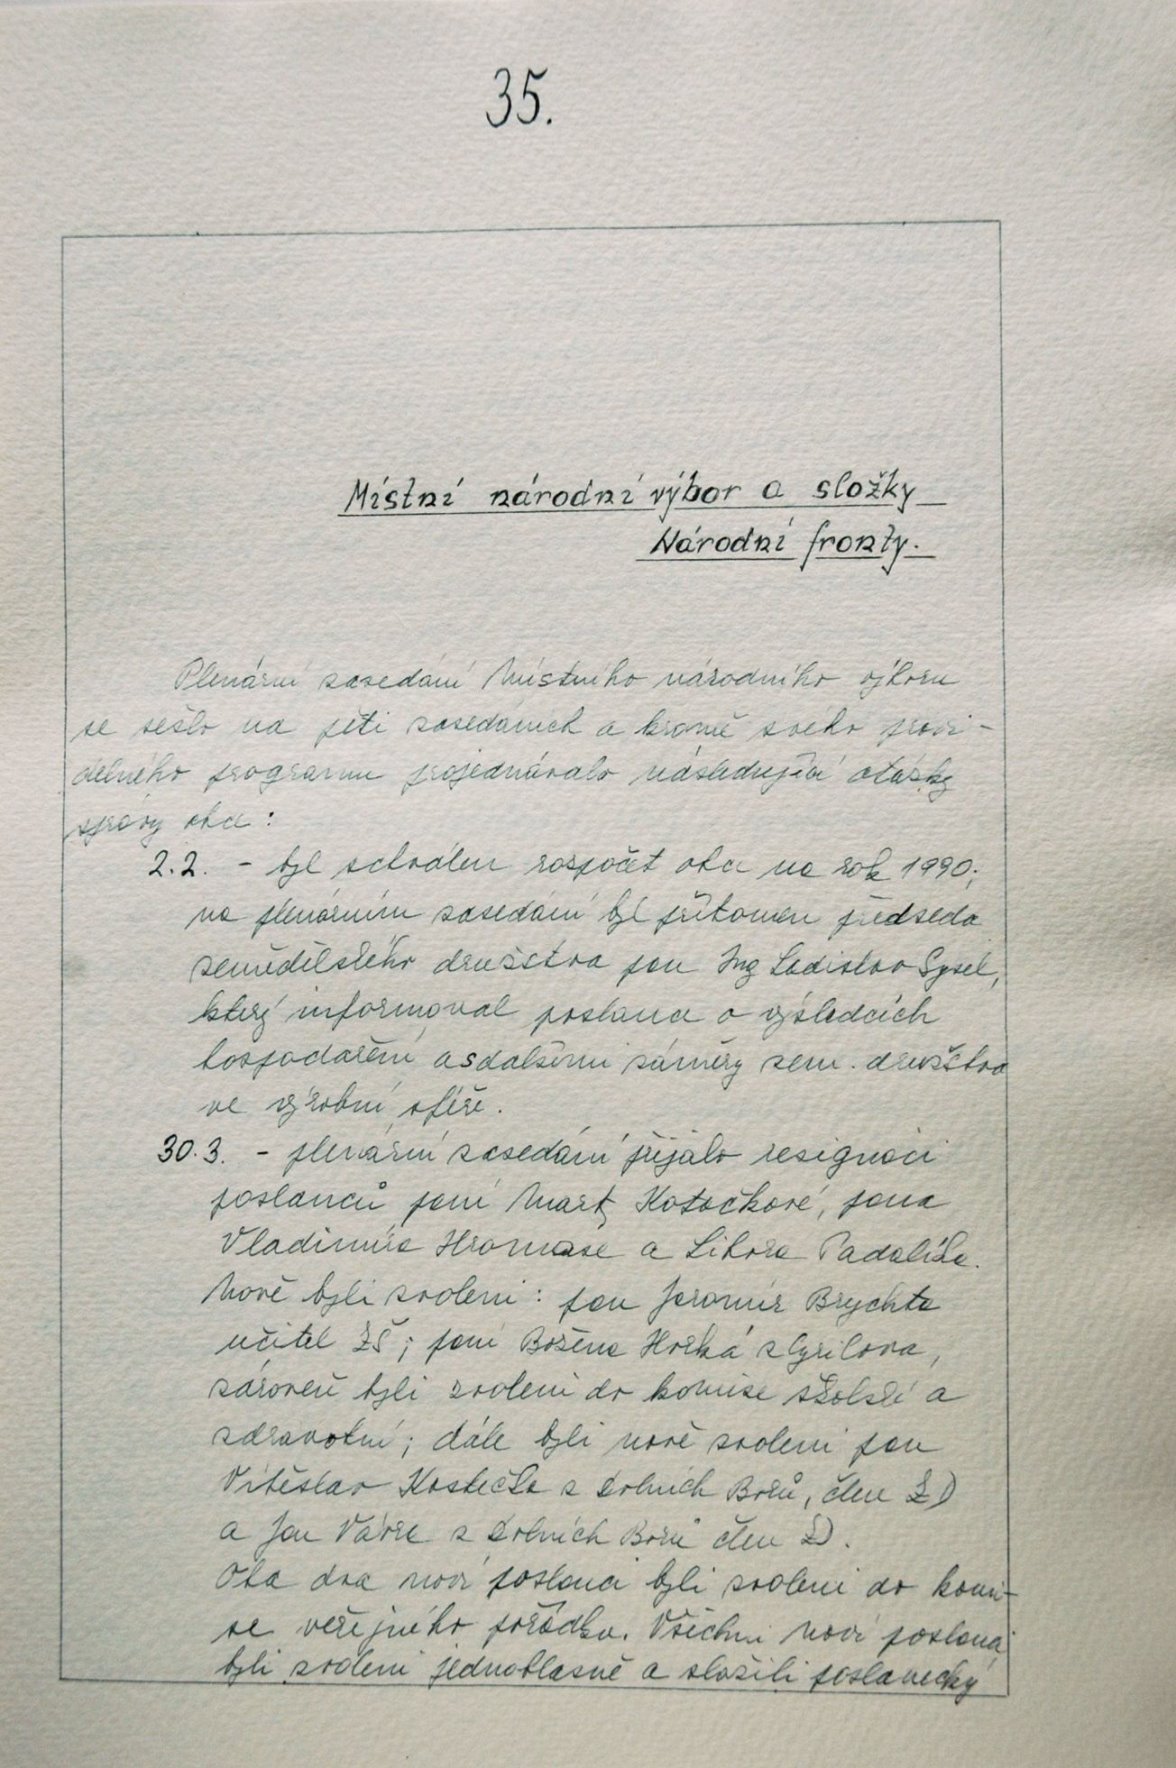 35.
Místní národní výbor a složky
Národní fronty.
Plenární zasedání Místního národního výboru
se sešlo na pěti zasedáních a kromě svého pravi-
delného programu projednávalo následující otázky
správy obce:
2.2. - byl schválen rozpočet obce na rok 1990;
na plenárním zasedání byl přítomen předseda
zemědělského družstva pan Ing Ladislav Sysel,
který informoval poslance o výsledcích
hospodaření a s dalšími záměry zem. družstva
ve výrobní sféře.
30.3. - plenární zasedání přijalo resignaci
poslanců paní Marty Kotačkové, pana
Vladimíra Hromase a Libora Padalíka.
Nově byli zvoleni: pan Jaromír Brychta
učitel ZŠ; paní Božena Horká z Cyrilova,
zároveň byli zvoleni do komise školské a
zdravotní; dále byli nově zvoleni pan
Vítězslav Kostečka z Dolních Borů, člen ZD
a Jan Vávra z Dolních Borů člen ZD.
Oba dva noví poslanci byli zvoleni do komi-
se veřejného pořádku. Všichni noví poslanci
byli zvoleni jednohlasně a složili poslanecký